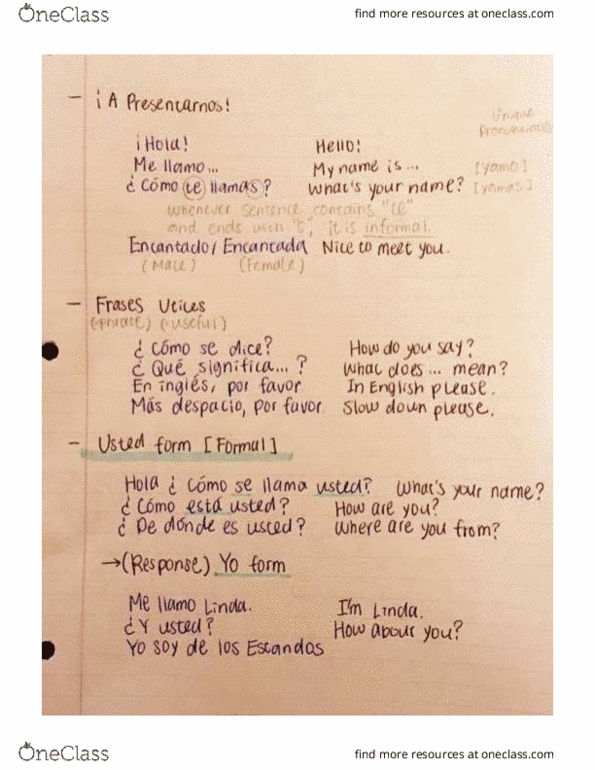 OneClass find more resources at oneclass.com
- ¡A Presentarnos!
Unique
Pronunciation
¡Hola! Hello!
Me llamo... My name is... [yamo]
¿Cómo te llamas? What's your name? [yamas]
whenever sentence contains "te"
and ends with "s", it is informal.
Encantado/Encantada Nice to meet you.
(Male) (Female)
- Frases Utiles
(phrase) (useful)
¿Cómo se dice? How do you say?
¿Qué significa...? What does... mean?
En inglés, por favor In English please.
Más despacio, por favor. Slow down please.
- Usted form [Formal]
Hola ¿Cómo se llama usted? What's your name?
¿Cómo está usted? How are you?
¿De dónde es usted? Where are you from?
→(Response) Yo form
Me llamo Linda. I'm Linda.
¿Y usted? How about you?
Yo soy de los Escandos
OneClass find more resources at oneclass.com